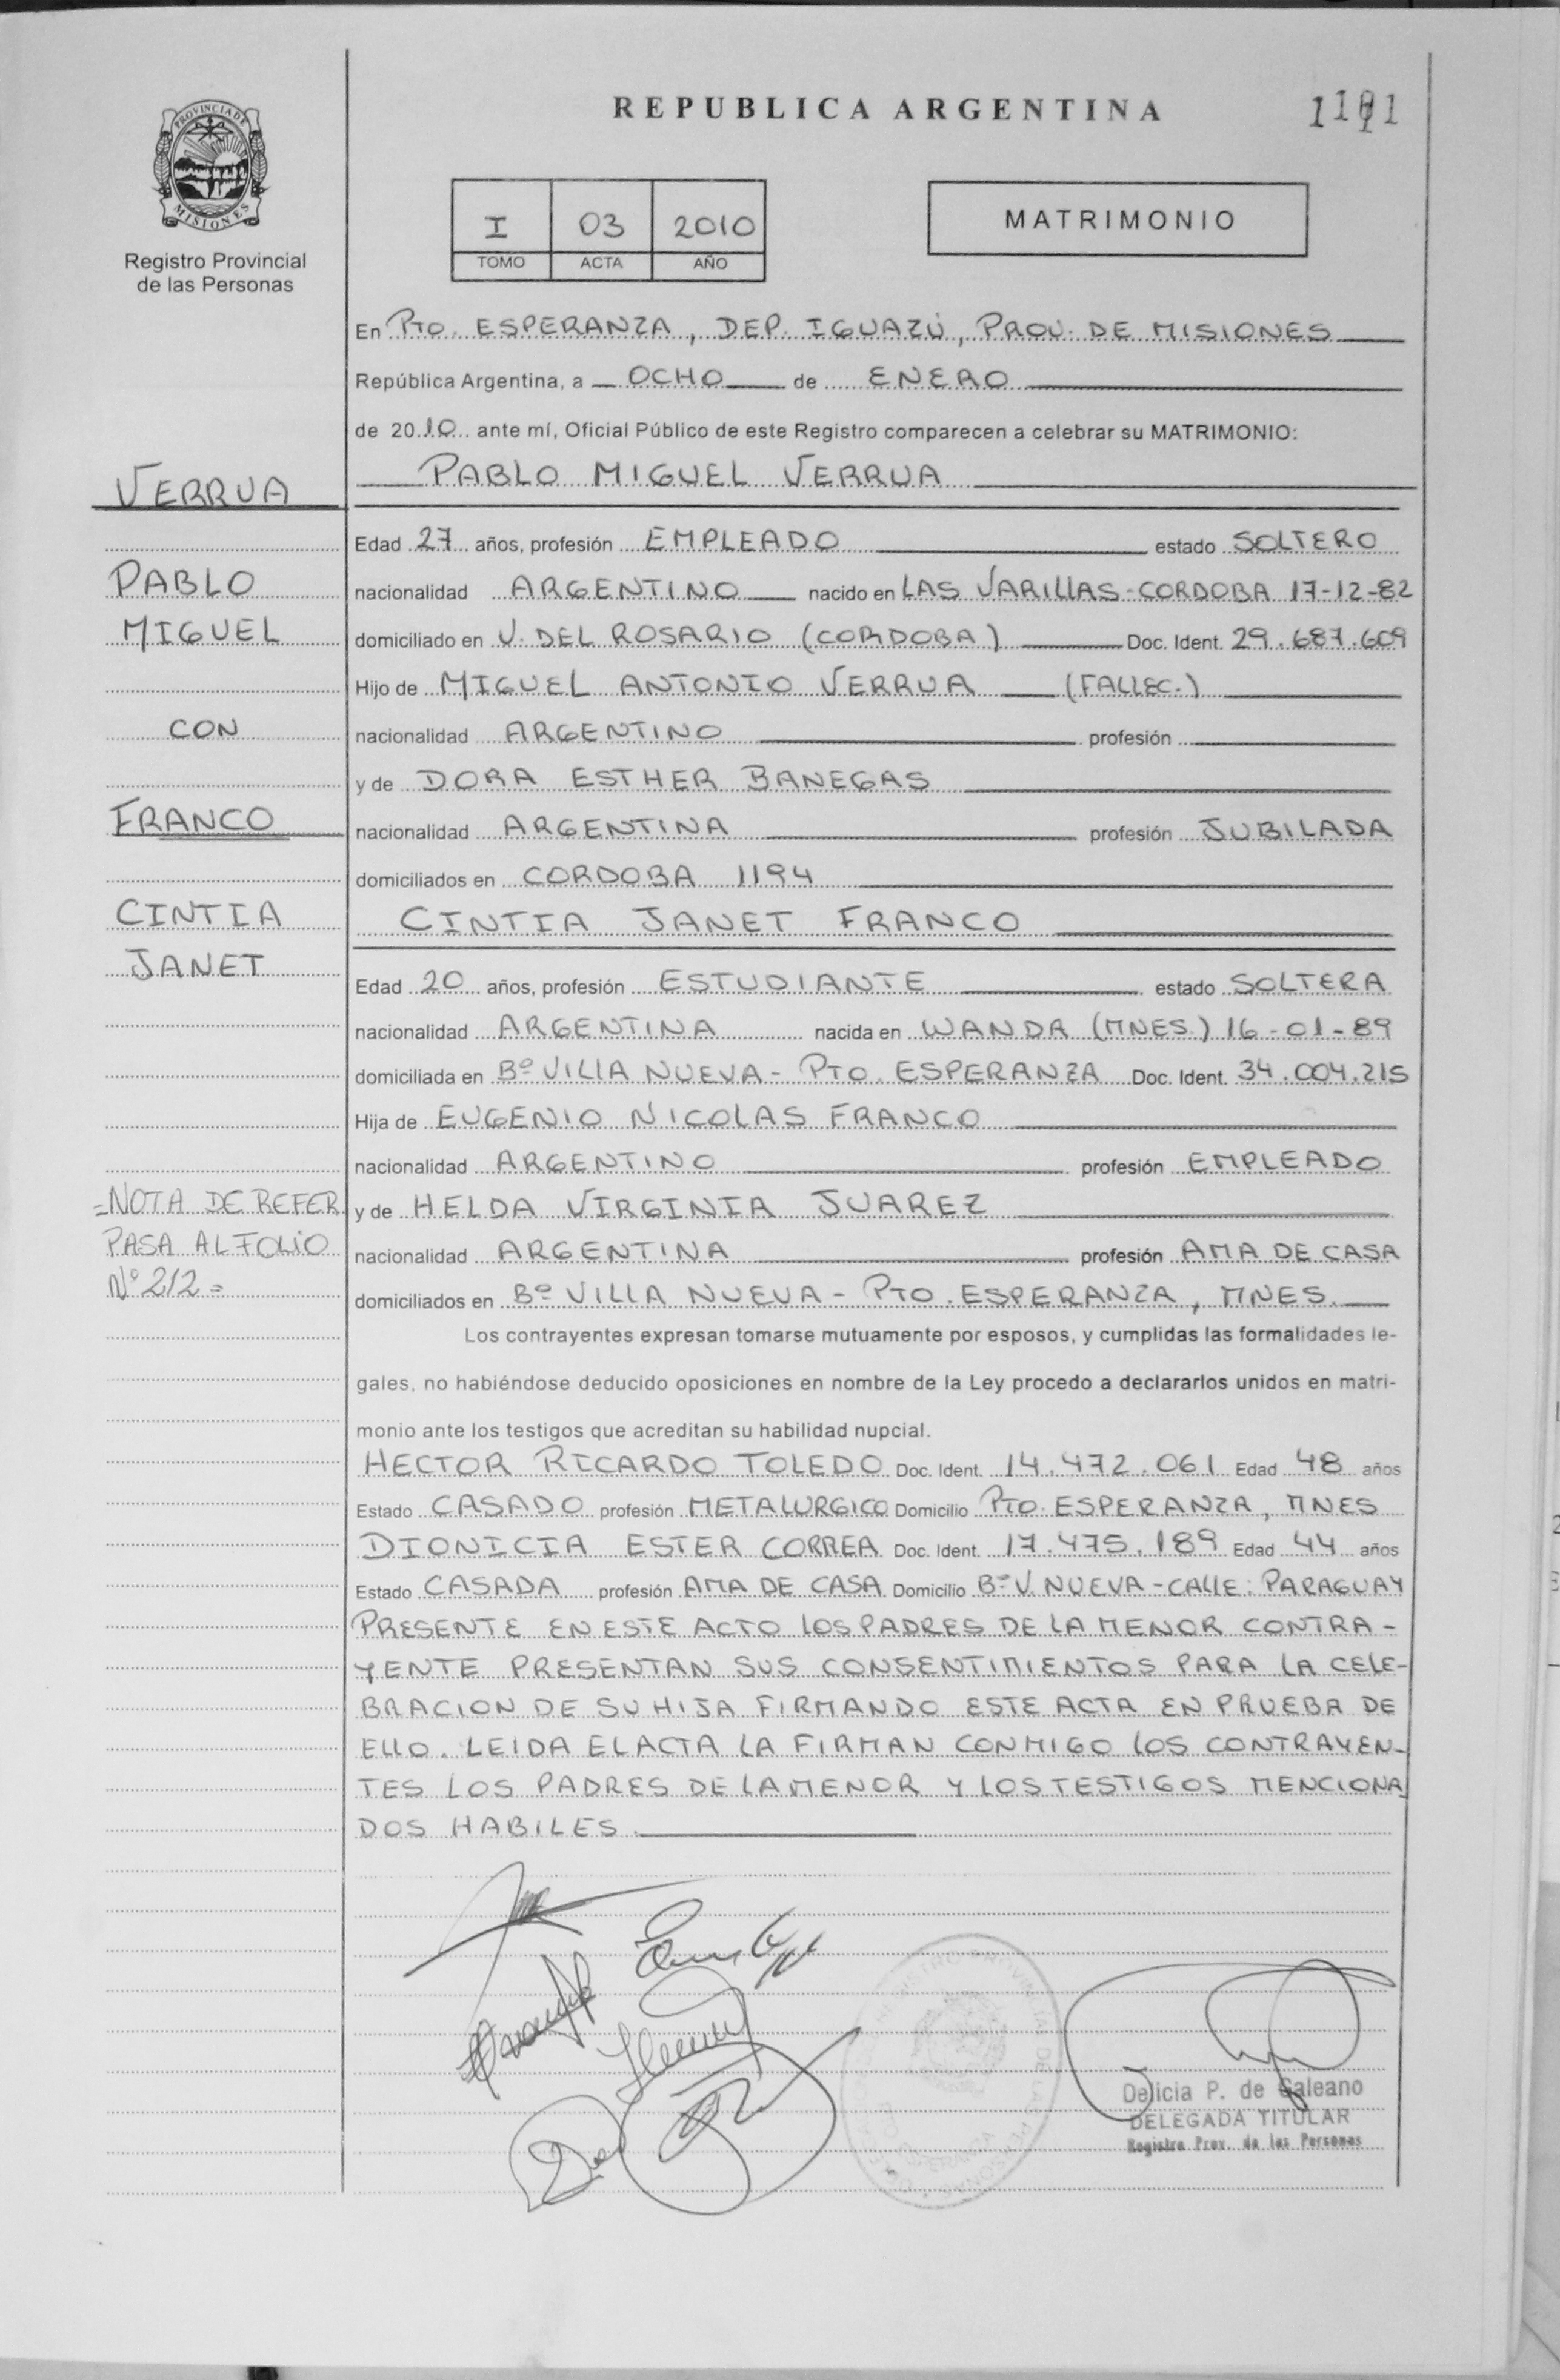 PROVINCIA DE
MISIONES
Registro Provincial
de las Personas
REPUBLICA ARGENTINA
I 03 2010
TOMO ACTA AÑO
MATRIMONIO
En PTO. ESPERANZA, DEP. IGUAZÚ, PROV. DE MISIONES
República Argentina, a OCHO de ENERO
de 2010 ante mí, Oficial Público de este Registro comparecen a celebrar su MATRIMONIO:
PABLO MIGUEL VERRUA
VERRUA
Edad 27 años, profesión EMPLEADO estado SOLTERO
PABLO
nacionalidad ARGENTINO nacido en LAS VARILLAS-CORDOBA 17-12-82
MIGUEL
domiciliado en V. DEL ROSARIO (CORDOBA) Doc. Ident. 29.687.609
Hijo de MIGUEL ANTONIO VERRUA (FALLEC.)
CON
nacionalidad ARGENTINO profesión
y de DORA ESTHER BANEGAS
FRANCO
nacionalidad ARGENTINA profesión JUBILADA
domiciliados en CORDOBA 1194
CINTIA
CINTIA JANET FRANCO
JANET
Edad 20 años, profesión ESTUDIANTE estado SOLTERA
nacionalidad ARGENTINA nacida en WANDA (MNES.) 16-01-89
domiciliada en Bº VILLA NUEVA - PTO. ESPERANZA Doc. Ident. 34.004.215
Hija de EUGENIO NICOLAS FRANCO
nacionalidad ARGENTINO profesión EMPLEADO
=NOTA DE REFER
y de HELDA VIRGINIA JUAREZ
PASA AL FOLIO
nacionalidad ARGENTINA profesión AMA DE CASA
Nº 212=
domiciliados en Bº VILLA NUEVA - PTO. ESPERANZA, MNES.
Los contrayentes expresan tomarse mutuamente por esposos, y cumplidas las formalidades le-
gales, no habiéndose deducido oposiciones en nombre de la Ley procedo a declararlos unidos en matri-
monio ante los testigos que acreditan su habilidad nupcial.
HECTOR RICARDO TOLEDO Doc. Ident. 14.472.061 Edad 48 años
Estado CASADO profesión METALURGICO Domicilio PTO. ESPERANZA, MNES
DIONICIA ESTER CORREA Doc. Ident. 17.475.189 Edad 44 años
Estado CASADA profesión AMA DE CASA Domicilio Bº V. NUEVA - CALLE: PARAGUAY
PRESENTE EN ESTE ACTO LOS PADRES DE LA MENOR CONTRA-
YENTE PRESENTAN SUS CONSENTIMIENTOS PARA LA CELE-
BRACION DE SU HIJA FIRMANDO ESTE ACTA EN PRUEBA DE
ELLO. LEIDA EL ACTA LA FIRMAN CONMIGO LOS CONTRAYEN-
TES LOS PADRES DE LA MENOR Y LOS TESTIGOS MENCIONA
DOS HABILES.
Delicia P. de Galeano
DELEGADA TITULAR
Registro Prov. de las Personas